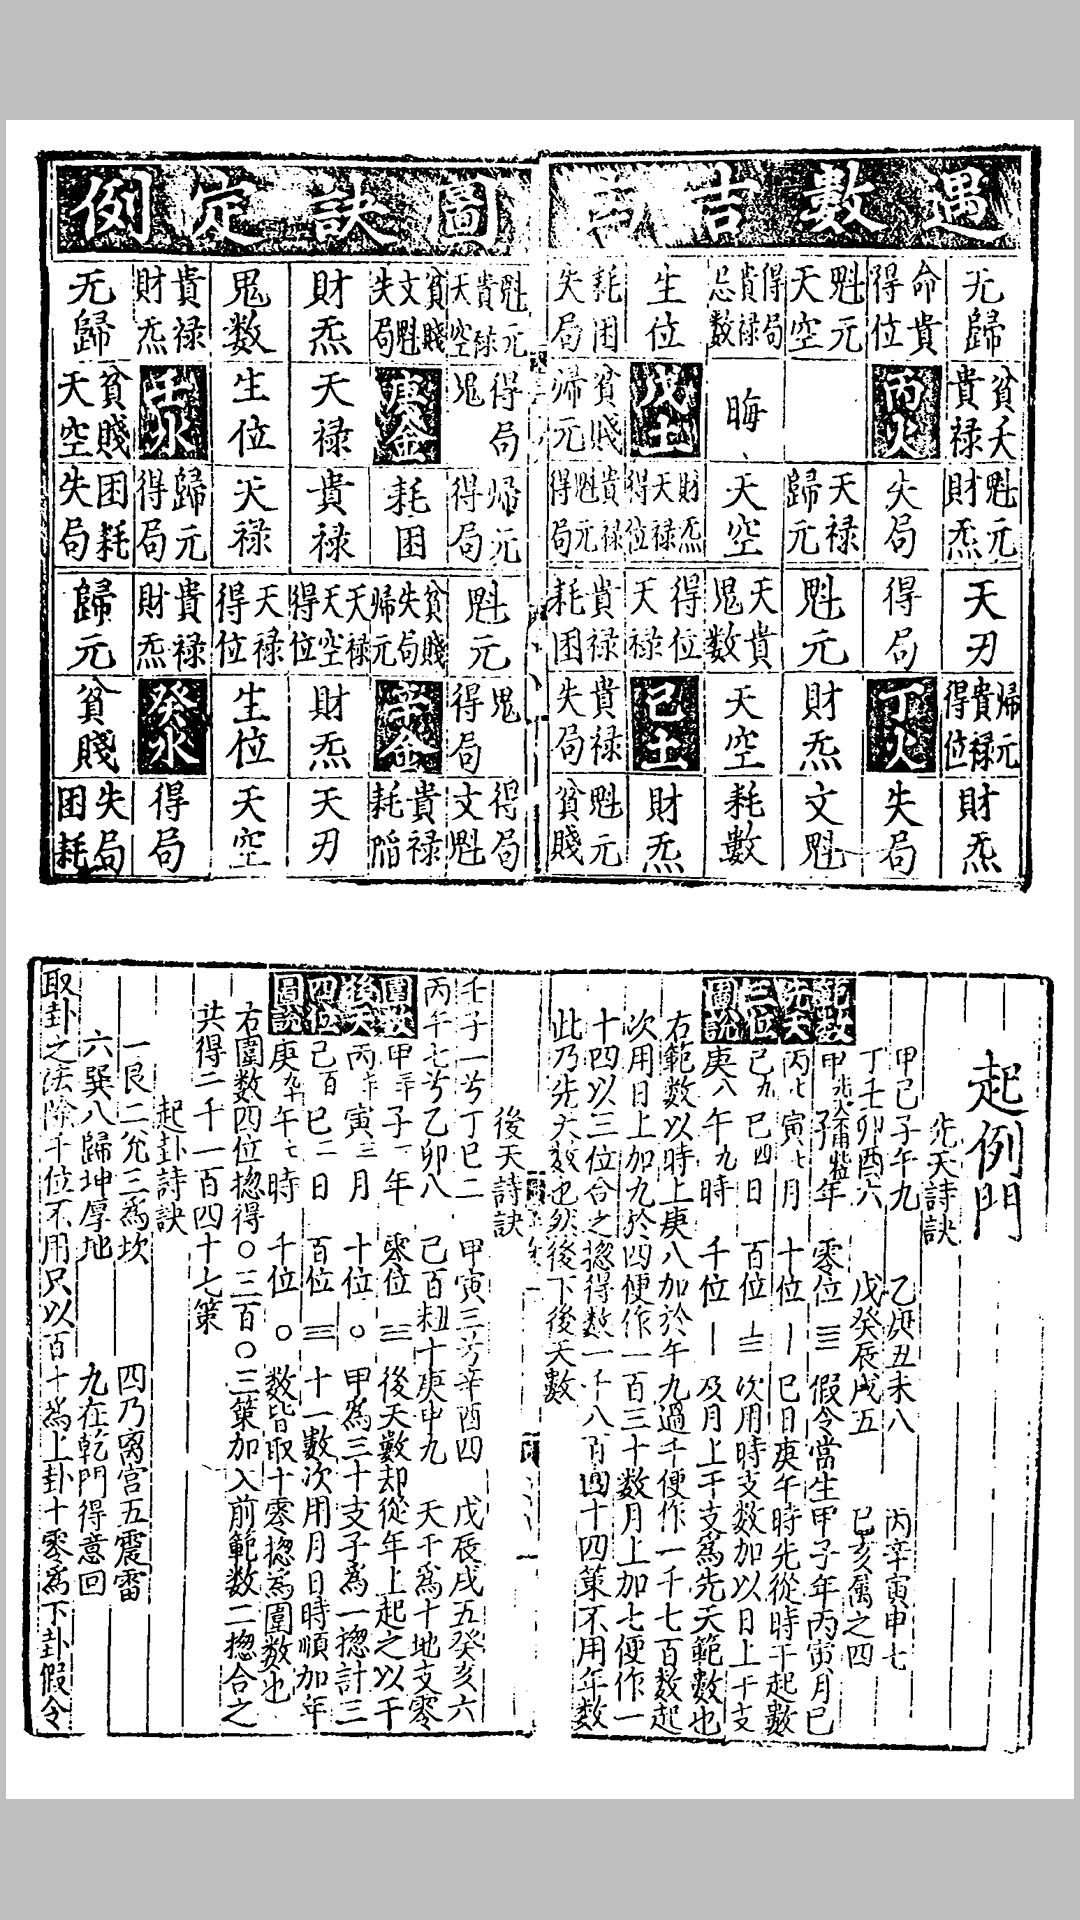 遇數吉
圖訣定例
无歸 命貴得位 魁元天空 得局貴祿忌數 生位 耗困失局
貧夭貴祿 丙火 晦 戊土 貧賤歸元
魁元財炁 失局 天祿歸元 天空 財炁天祿得位 貴祿魁元得局
天刃 得局 魁元 天貴鬼數 得位天祿 貴祿耗困
歸元貴祿得位 丁火 財炁 天空 己土 貴祿失局
財炁 失局 文魁 耗數 財炁 魁元貧賤
魁元貴祿天空 貧賤文魁失局 財炁 鬼數 貴祿財炁 无歸
得局鬼 庚金 天祿 生位 壬水 貧賤天空
歸元得局 耗困 貴祿 天祿 歸元得局 困耗失局
魁元 貧賤失局歸元 天祿天空得位 天祿得位 貴祿財炁 歸元
鬼得局 辛金 財炁 生位 癸水 貧賤
得局文魁 貴祿耗陷 天刃 天空 得局 失局困耗
起例門
先天詩訣
甲己子午九 乙庚丑未八 丙辛寅申七
丁壬卯酉六 戊癸辰戌五 巳亥屬之四
範數 甲 子年 零位 亖 假令當生甲子年丙寅月己
先天 丙七 寅七月 十位 〡 巳日庚午時先從時干起數
三位 己九 巳四日 百位 次用時支數加以日上干支
圖說 庚八 午九時 千位 〡 及月上干支爲先天範數也
右範數以時上庚八加於午九過千便作一千七百数起
次用日上加九於四便作一百三十数月上加七便作一
十四以三位合之揔得数一千八百四十四策不用年数
此乃先天数也然後下後天數
後天詩訣
壬子一兮丁巳二 甲寅三兮辛酉四 戊辰戌五癸亥六
丙午七兮乙卯八 己百丑十庚申九 天干爲十地支零
圍數 甲三十 子一年 零位 亖 後天數却從年上起之以干
後天 丙七十 寅三月 十位 〇 甲爲三十支子爲一揔計三
四位 己百 巳二日 百位 亖 十一數次用月日時順加年
圖說 庚九十 午七時 千位 〇 数皆取十零揔爲圍数也
右圍数四位揔得〇三百〇三策加入前範数二揔合之
共得二千一百四十七策
起卦詩訣
一艮二兊三爲坎 四乃离宫五震雷
六巽八歸坤厚地 九在乾門得意回
取卦之法除千位不用只以百十爲上卦十零爲下卦假令